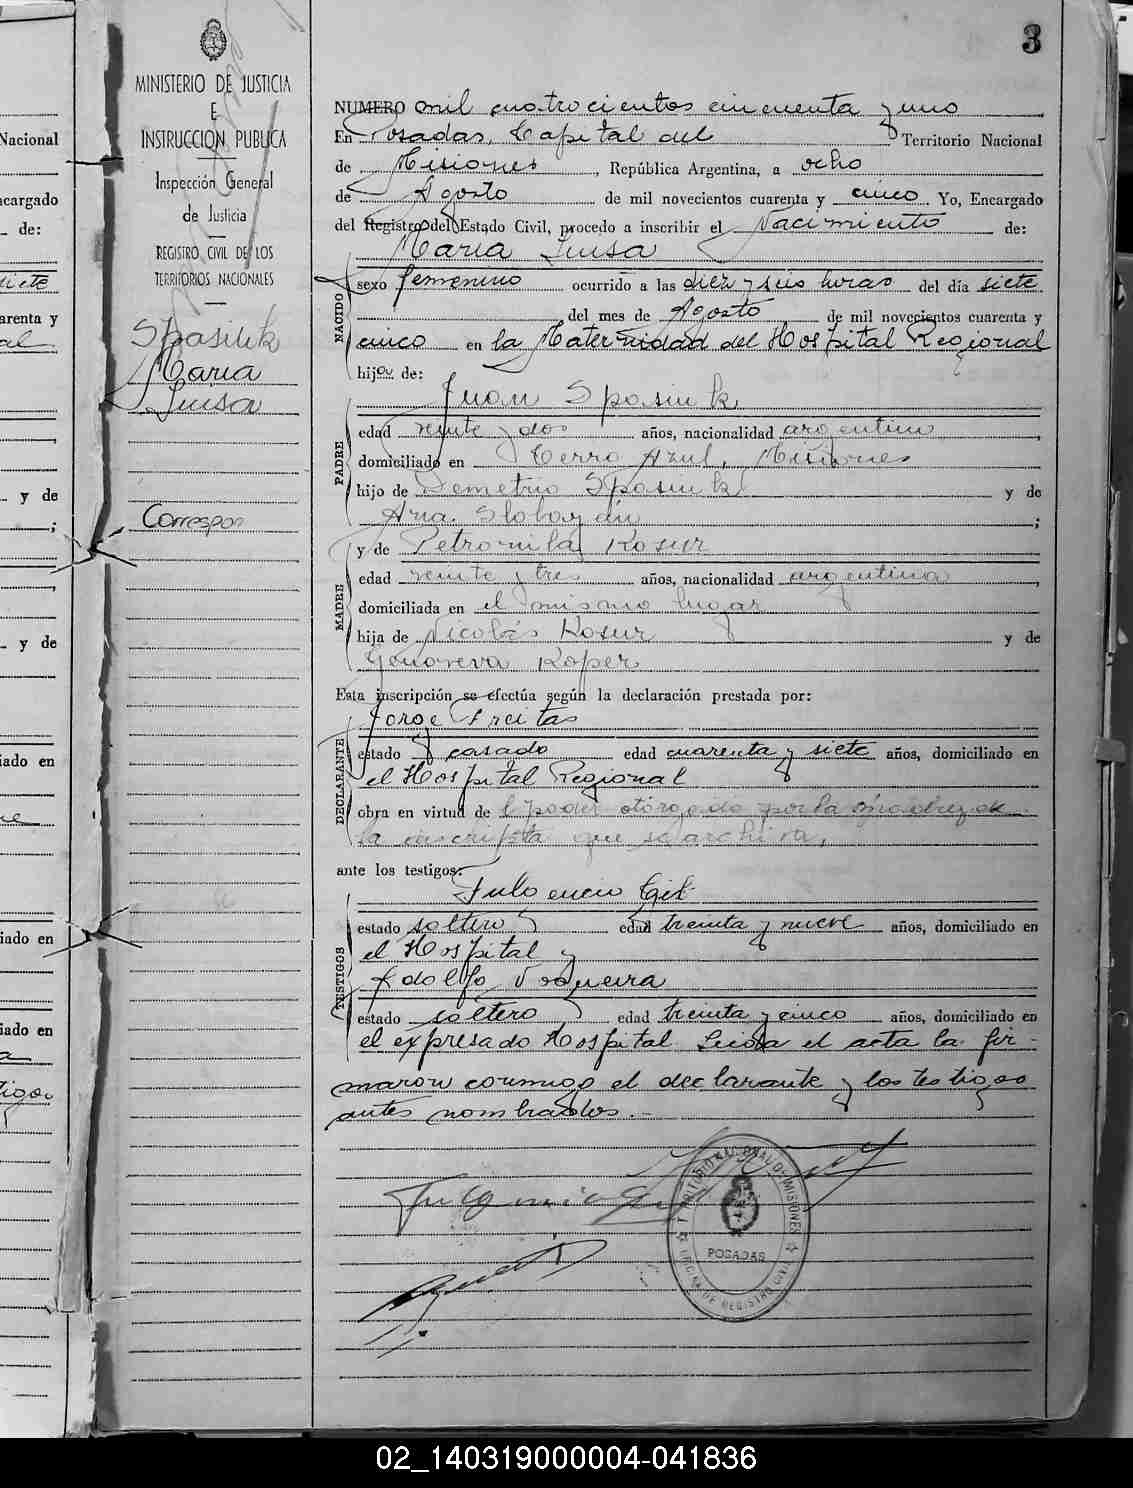 3
MINISTERIO DE JUSTICIA
E
INSTRUCCION PUBLICA
Inspección General
de Justicia
REGISTRO CIVIL DE LOS
TERRITORIOS NACIONALES
Spasiuk
Maria
Luisa
Correspon
NUMERO mil cuatrocientos cincuenta y uno
En Posadas, Capital del Territorio Nacional
de Misiones, República Argentina, a ocho
de Agosto de mil novecientos cuarenta y cinco Yo, Encargado
del Registro del Estado Civil, procedo a inscribir el Nacimiento de:
Maria Luisa
NACIDO
sexo femenino ocurrido a las diez y seis horas del día siete
del mes de Agosto de mil novecientos cuarenta y
cinco en la Maternidad del Hospital Regional
hijo de:
PADRE
Juan Spasiuk
edad veinte y dos años, nacionalidad argentino,
domiciliado en Cerro Azul, Misiones
hijo de Demetrio Spasiuk y de
Ana ;
y de Petronila Kosur
MADRE
edad veinte y tres años, nacionalidad argentina,
domiciliada en el mismo lugar
hija de Nicolás Kosur y de
Genoveva Koper
Esta inscripción se efectúa según la declaración prestada por:
DECLARANTE
Jorge Freitas
estado casado edad cuarenta y siete años, domiciliado en
el Hospital Regional
obra en virtud de l poder otorgado por la madre de
la inscripta que se archiva.
ante los testigos:
TESTIGOS
Fulgencio Gil
estado soltero edad treinta y nueve años, domiciliado en
el Hospital y
Adolfo Nogueira
estado soltero edad treinta y cinco años, domiciliado en
el expresado Hospital. Leida el acta la fir-
maron conmigo el declarante y los testigos
antes nombrados.-
TERRITORIO NACIONAL DE MISIONES
POSADAS
OFICINA DE REGISTRO CIVIL
Nacional
ncargado
de:
siete
arenta y
y de
;
y de
iado en
iado en
iado en
02_140319000004-041836